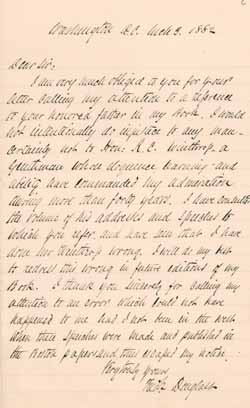 Washington D.C. Mch 3. 1882
Dear Sir:
I am very much obliged to you for your
letter calling my attention to a reference
to your honored father in my Book. I would
not intentionally do injustice to any man—
certainly not to Hon: R.C. Winthrop. a
Gentleman whose eloquence learning and
ability have commanded my admiration
during more than forty years. I have consulted
the volume of his addresses and speeches to
which you refer. and have seen that I have
done Mr Winthrop wrong. I will do my best
to redress this wrong in future editions of my
Book. I thank you sincerely for calling my
attention to an error which could not have
happened to me had I not been in the west
when these speeches were made and published in
the Boston papers and thus escaped my notice.
Very truly yours
Fredk Douglass